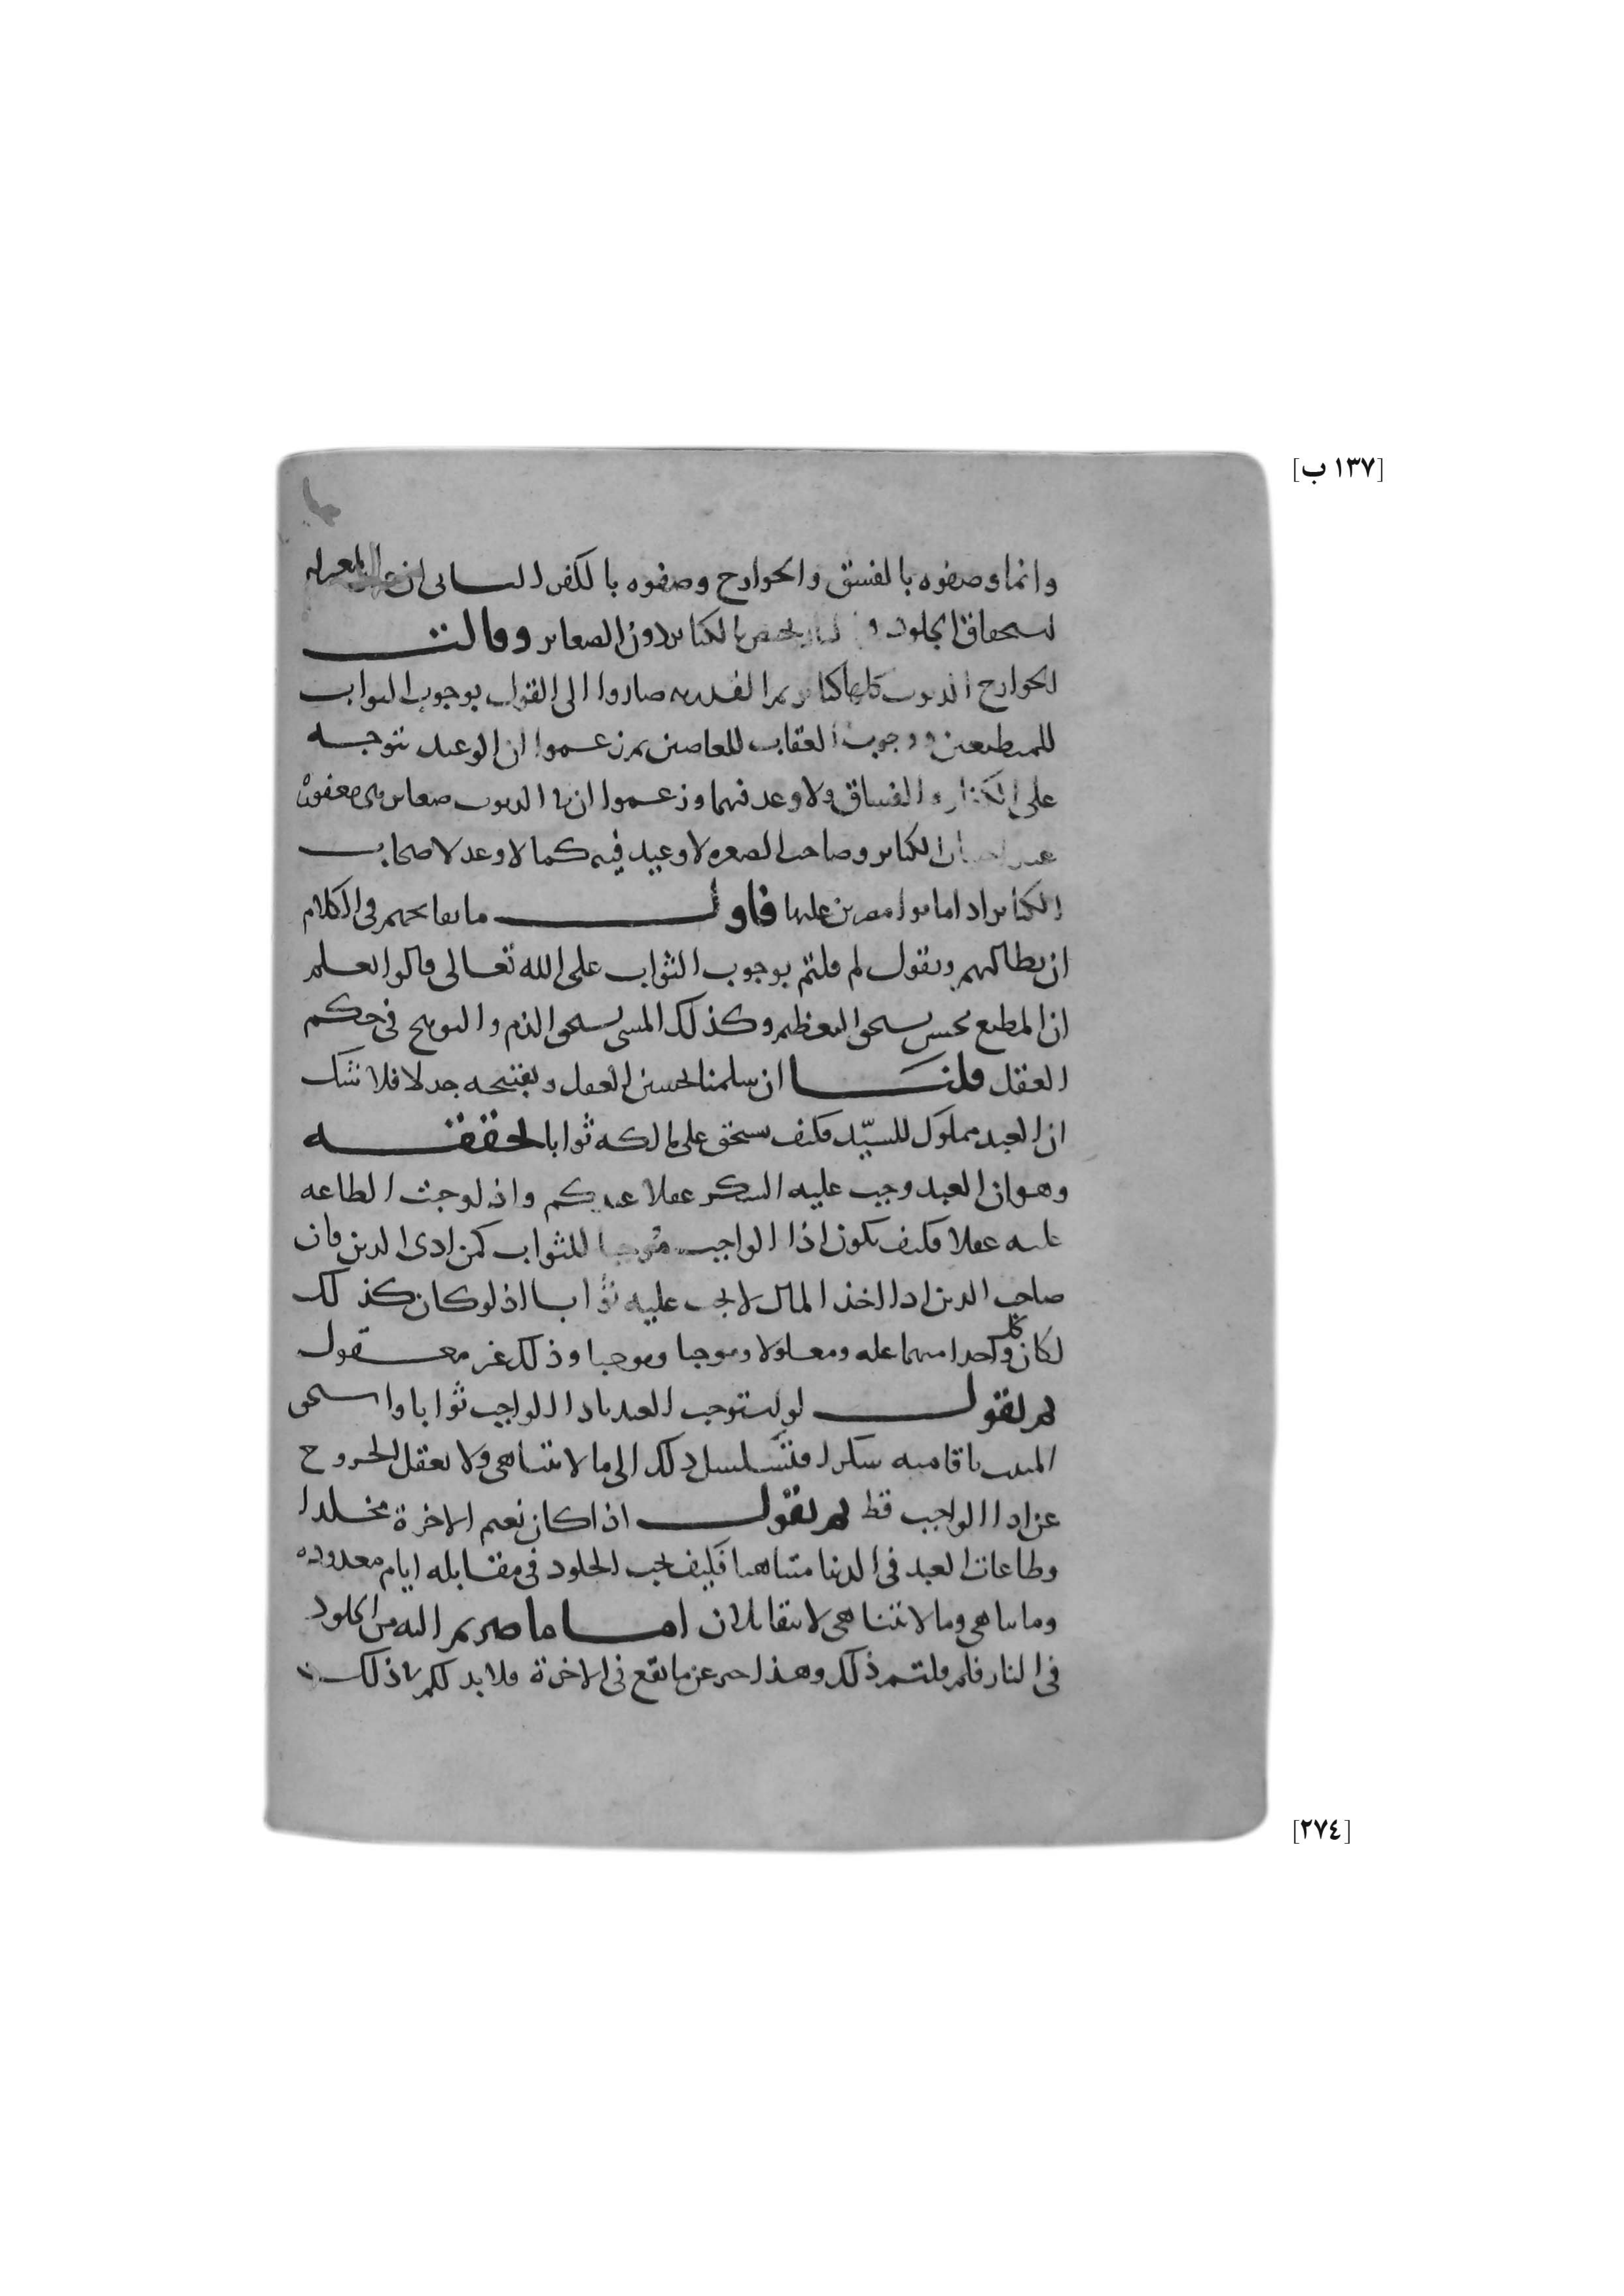 [١٣٧ ب]
وانما وصفوه بالفسق والخوارج وصفوه بالكفر الثاني ان عند المعتزلة
استحقاق الخلود في النار يختص بالكبائر دون الصغائر وقالت
الخوارج الذنوب كلها كبائر ثم القدريه صاروا الى القول بوجوب الثواب
للمطيعين ووجوب العقاب للعاصين ثم زعموا ان الوعيد يتوجه
على الكفار والفساق ولا وعد فيهما وزعموا ان الذنوب صغائر هى معفوة
عند اجتناب الكبائر وصاحب الصغيره لا وعيد فيه كما لا وعد لاصحاب
الكبائر اذا ماتوا مصرين عليها فاول ما نفاتحهم فى الكلام
ان نطالبهم ونقول لم قلتم بوجوب الثواب على الله تعالى قالوا لعلم
ان المطيع محسن يستحق التعظيم وكذلك المسى يستحق الذم والتوبيخ فى حكم
العقل قلنا ان سلمنا تحسين العقل وتقبيحه جدلا فلا نشك
ان العبد مملوك للسيّد فكيف يستحق على مالكه ثوابا تحققه
وهو ان العبد وجب عليه الشكر عقلا عندكم واذ لو وجبت الطاعه
عليه عقلا فكيف يكون اذا الواجب موجبا للثواب كمن ادى الدين فان
صاحب الدين اذا اخذ المال لا يجب عليه ثوابا اذ لو كان كذلك
لكان كل واحدا منهما عله ومعلولا وموجبا وموجبا وذلك غير معقول
ثم نقول لو استوجب العبد بادا الواجب ثوابا واستحق
المثيب باقامته شكرا فيتسلسل ذلك الى ما لا يتناهى ولا يعقل الخروج
عن ادا الواجب قط ثم نقول اذا كان نعيم الاخرة مخلدا
وطاعات العبد فى الدنيا متناهيا فكيف يجب الخلود فى مقابله ايام معدوده
وما يتناهى وما لا يتناهى لا يتقابلان اما ما صرتم اليه من الخلود
فى النار فلم قلتم ذلك وهذا خبر عن ما يقع فى الاخرة ولا بد لكم فى ذلك
[٢٧٤]